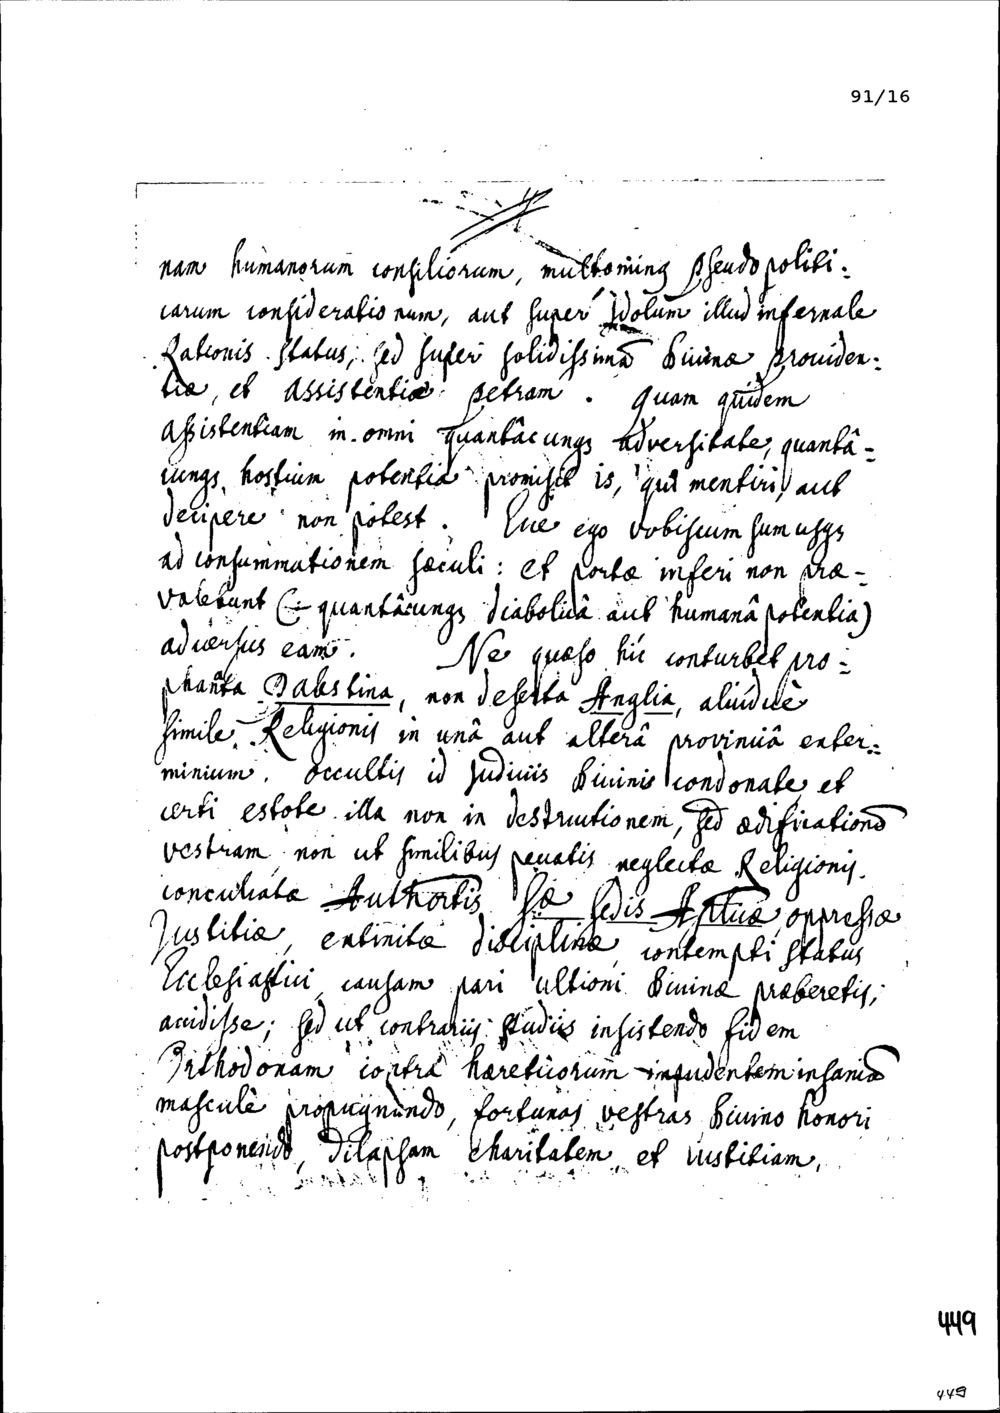 91/16
nam humanorum consiliorum, multominq pseudo politi:
carum consideratio num, aut super Idolum illud infernale
Rationis status, sed super solidissimā Diuinæ prouiden:
tiæ, et Assistentiæ petram. Quam quidem
assistentiam in omni quantâcunqs adversitate, quantâ=
cunqs hostium potentia promisit is, qui mentiri, aut
decipere non potest. Ecce ego vobiscum sum usqs
ad consummationem sæculi: et portæ inferi non præ=
valebunt (: quantâcunqs diabolicâ aut humanâ potentia)
adversus eam. Ne quæso hic conturbet pro=
phanata Palestina, non deserta Anglia, aliudue
simile Religionis in unâ aut alterâ provinciâ exter=
minium. occultis id Judiciis Diuinis condonate, et
certi estote illa non in destructionem, sed ædificationē
vestram non ut similibus peccatis neglectæ Religionis.
conculcatæ Authortis Sæ Sedis Aplicæ, oppressæ
Justitiæ, extinctæ disciplinæ, contempti status
Ecclesiastici, causam pari ultioni Diuinæ præberetis;
accidisse; sed ut contrariis studiis insistendo fidem
Orthodoxam contrà hæreticorum impudentem insaniā
masculè propugnando, fortunas vestras Diuino honori
postponendo, dilapsam charitatem et iustitiam,
449
449